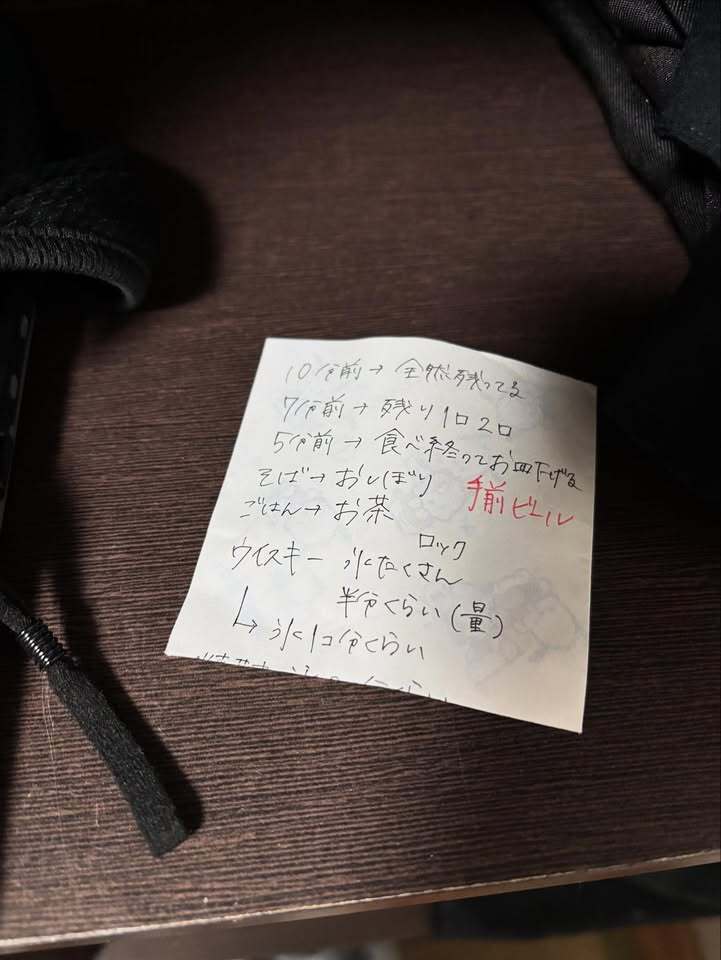 10分前→全然残ってる
7分前→残り1口2口
5分前→食べ終ってお皿下げる
そば→おしぼり
手前ビール
ごはん→お茶
ロック
ウイスキー 氷たくさん
半分くらい(量)
↳氷1コ分くらい